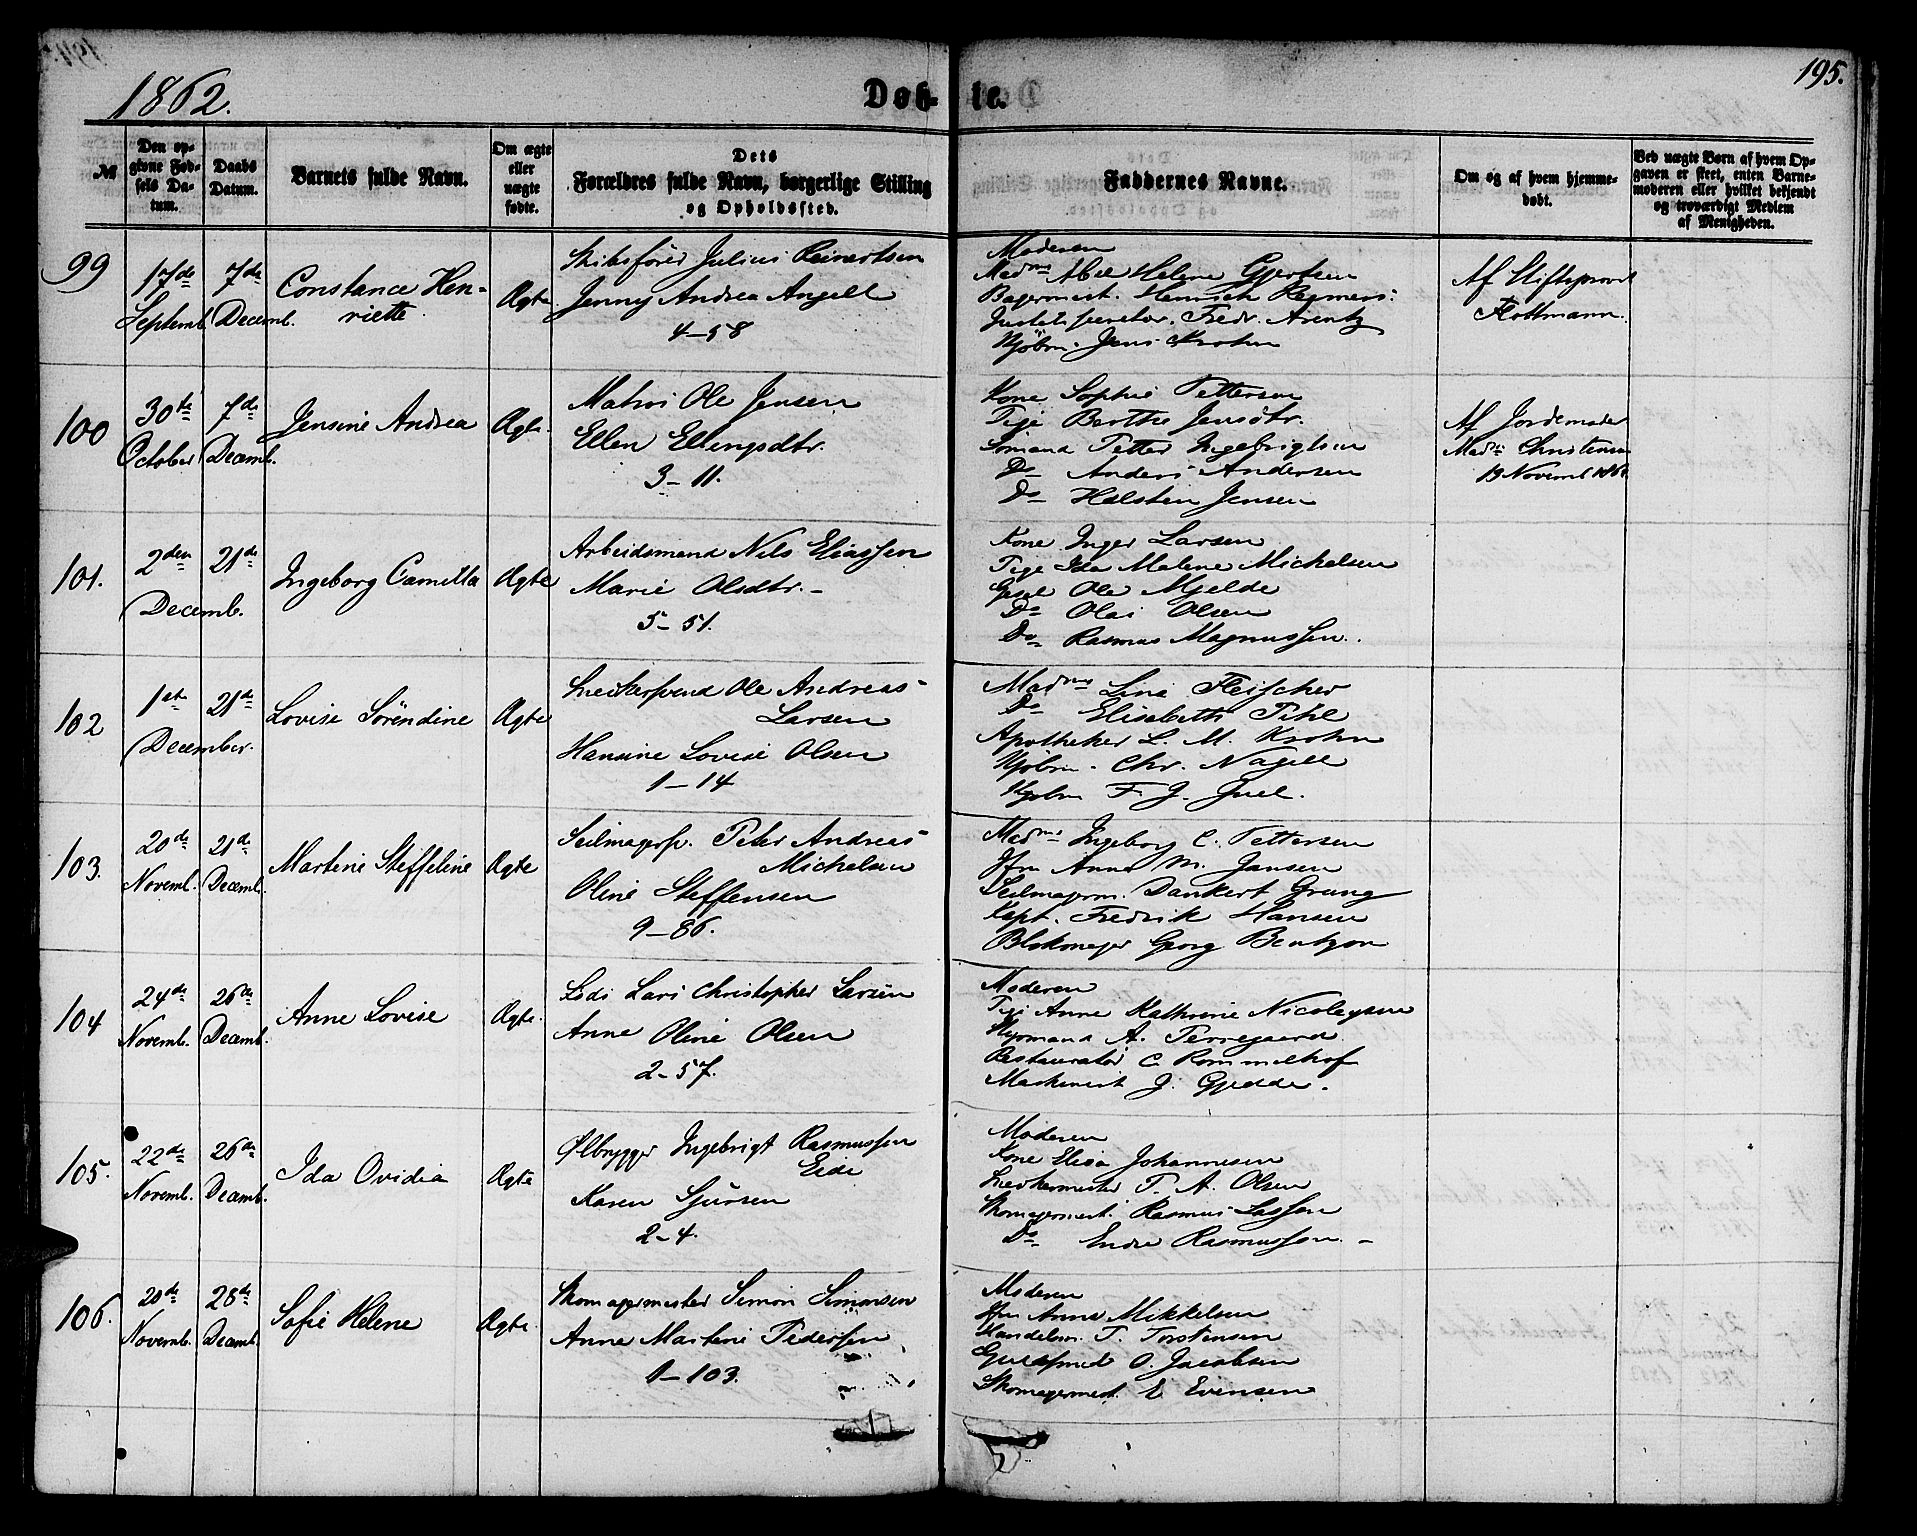 1862.
Døb-
te.
195.
№
Den op-
givne Fød-
sels Da-
tum.
Daabs
Datum.
Barnets fulde Navn.
Om ægte
eller
uægte
fødte.
Dets
Forældres fulde Navn, borgerlige Stilling
og Opholdssted.
Faddernes Navne.
Om og af hvem hjemme-
døbt.
Ved uægte Børn af hvem Op-
gaven er skeet, enten Barne-
moderen eller hvilket bekjendt
og troværdigt Medlem
af Menigheden.
99
17de
Septemb.
7de
Decemb.
Constance Hen-
riette
Ægte
Skibsfører Julius Reinertsen
Jenny Andrea Angell
4-58
Moderen
Madme Abel Helene Gjertsen
Bagermest. Henrich Regmers:
Justitssecretær. Fredr. Arentz
Kjøbm. Jens Krohn
Af Stiftsprovst
Rottmann.
100
30te
October
7de
Decemb.
Jensine Andrea
Ægte
Matros Ole Jensen
Ellen Ellingsdtr.
3-11.
Kone Sophie Pettersen
Pige Berthe Jensdtr.
Sömand Petter Ingebrigtsen
Do Anders Andersen
Do Halsten Jensen
Af Jordemoder
Mad. Christensen
13 Novemb 1862
101.
2den
Decemb.
21de
Ingeborg Camilla
Ægte
Arbeidsmand Nils Eliassen
Marie Olsdtr.-
5-51.
Kone Inger Larsen
Pige Ida Malene Michelsen
Gesel Ole Mjelde
Do Olai Olsen
Do Rasmus Magnussen.
102
1ste
December.
21de
Lovise Sørendine
Ægte
Snedkersvend Ole Andreas
Larsen
Hansine Lovise Olsen
1-14
Madme Lina Fleischer
Do Elisabeth Pihl
Apotheker L. M. Krohn
Kjøbm. Chr. Nagell
Kjøbm F. J. Juel.
103.
20de
Novemb.
21de
Decemb.
Martine Steffeline
Ægte
Seilmagersv. Peter Andreas
Michelsen
Oline Steffensen
9-86.
Madme Ingeborg C. Pettersen
Jfru Anne M. Jansen
Seilmagerm. Dankert Grung
Kapt. Fredrik Hansen
Blokmager Georg Bentzon
104
24de
Novemb.
26de
Decemb.
Anne Lovise
Ægte.
Lods Lars Christopher Larsen
Anne Oline Olsen
2-57.
Moderen
Pige Anne Kathrine Nicolaysen
Styrmand A. Terregaard.
Restauratør C. Rommelhof
Maskinist J. Gjedde.
105.
22de
Novemb.
26de
Decemb.
Ida Ovidia
Ægte
Ølbrygger Ingebrigt Rasmussen
Eide
Karen Sjursen
2-4.
Moderen
Kone Elisa Johannesen
Snedkermester T. A. Olsen
Skomagermest. Rasmus Lassen
Do Endre Rasmussen.-
106.
20de
Novemb.
28de
Decemb.
Sofie Helene
Ægte.
Skomagermester Simon Simonsen
Anne Martine Pedersen
1-103.
Moderen
Jfru Anne Mikkelsen
Handelsm. T. Torstensen
Guldsmed O. Jacobsen
Skomagermest. E. Evensen